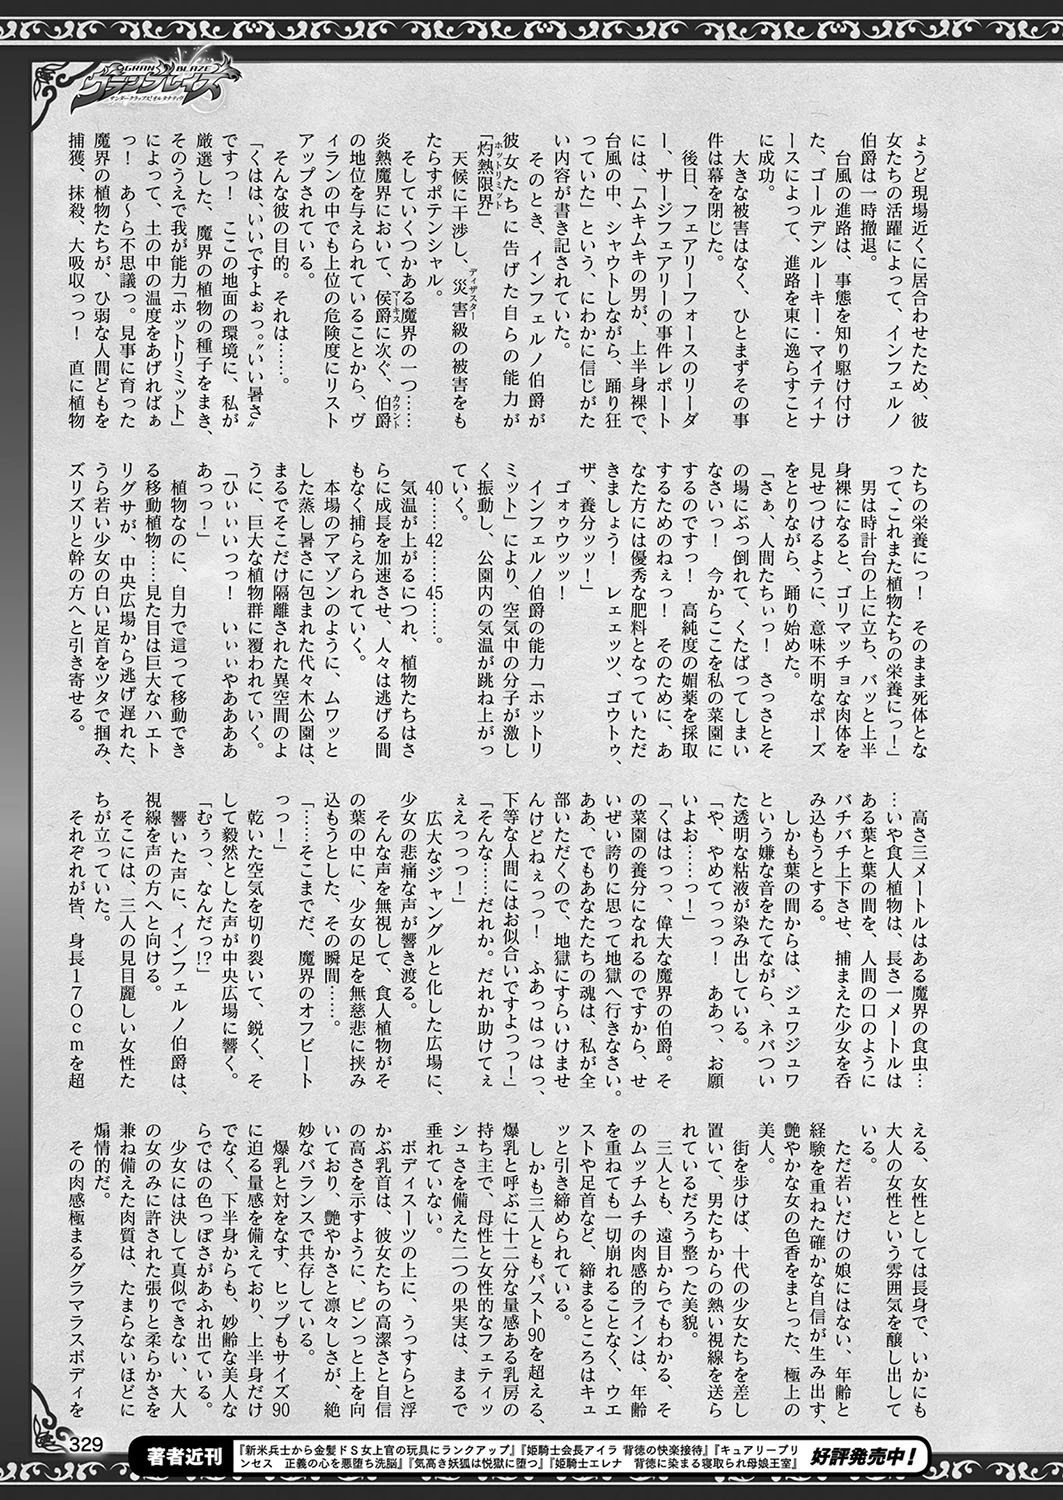 GRAN BLAZE
グランブレイズ
サンダークラップス！オルタナティヴ
ょうど現場近くに居合わせたため、彼
女たちの活躍によって、インフェルノ
伯爵は一時撤退。
　台風の進路は、事態を知り駆け付け
た、ゴールデンルーキー・マイティナ
ースによって、進路を東に逸らすこと
に成功。
　大きな被害はなく、ひとまずその事
件は幕を閉じた。
　後日、フェアリーフォースのリーダ
ー、サージフェアリーの事件レポート
には、「ムキムキの男が、上半身裸で、
台風の中、シャウトしながら、踊り狂
っていた」という、にわかに信じがた
い内容が書き記されていた。
　そのとき、インフェルノ伯爵が
彼女たちに告げた自らの能力が
「灼熱限界」
ホットリミット
　天候に干渉し、災害級の被害をも
ディザスター
たらすポテンシャル。
　そしていくつかある魔界の一つ……
炎熱魔界において、侯爵に次ぐ、伯爵
マーキス
カウント
の地位を与えられていることから、ヴ
ィランの中でも上位の危険度にリスト
アップされている。
　そんな彼の目的。それは……。
「くはは、いいですよぉっ。〝いい暑さ〟
ですっ！　ここの地面の環境に、私が
厳選した、魔界の植物の種子をまき、
そのうえで我が能力「ホットリミット」
によって、土の中の温度をあげればぁ
っ！　あ～ら不思議っ。見事に育った
魔界の植物たちが、ひ弱な人間どもを
捕獲、抹殺、大吸収っっ！　直に植物
たちの栄養にっ！　そのまま死体とな
って、これまた植物たちの栄養にっ！」
　男は時計台の上に立ち、バッと上半
身裸になると、ゴリマッチョな肉体を
見せつけるように、意味不明なポーズ
をとりながら、踊り始めた。
「さぁ、人間たちぃっ！　さっさとそ
の場にぶっ倒れて、くたばってしまい
なさいっ！　今からここを私の菜園に
するのですっ！　高純度の媚薬を採取
するためのねぇっ！　そのために、あ
なた方には優秀な肥料となっていただ
きましょう！　レェェッツ、ゴウトゥ、
ザ、養分ッッ！」
　ゴォゥウッッ！
　インフェルノ伯爵の能力「ホットリ
ミット」により、空気中の分子が激し
く振動し、公園内の気温が跳ね上がっ
ていく。
　40……42……45……。
　気温が上がるにつれ、植物たちはさ
らに成長を加速させ、人々は逃げる間
もなく捕らえられていく。
　本場のアマゾンのように、ムワッと
した蒸し暑さに包まれた代々木公園は、
まるでそこだけ隔離された異空間のよ
うに、巨大な植物群に覆われていく。
「ひぃぃいっっ！　いぃぃやああああ
あっっ！」
　植物なのに、自力で這って移動でき
る移動植物……見た目は巨大なハエト
リグサが、中央広場から逃げ遅れた、
うら若い少女の白い足首をツタで掴み、
ズリズリと幹の方へと引き寄せる。
　高さ三メートルはある魔界の食虫…
…いや食人植物は、長さ一メートルは
ある葉と葉の間を、人間の口のように
バチバチ上下させ、捕まえた少女を呑
み込もうとする。
　しかも葉の間からは、ジュワジュワ
という嫌な音をたてながら、ネバつい
た透明な粘液が染み出している。
「や、やめてっっっ！　ああっ、お願
いよお……っ！」
「くははっっ、偉大な魔界の伯爵。そ
の菜園の養分になれるのですから、せ
いぜい誇りに思って地獄へ行きなさい。
ああ、でもあなたたちの魂は、私が全
部いただくので、地獄にすらいけませ
んけどねぇっっ！　ふあっはっはっ、
下等な人間にはお似合いですよっっ！」
「そんな……だれか。だれか助けてぇ
ぇえっっっ！」
　広大なジャングルと化した広場に、
少女の悲痛な声が響き渡る。
　そんな声を無視して、食人植物がそ
の葉の中に、少女の足を無慈悲に挟み
込もうとした、その瞬間……。
「……そこまでだ、魔界のオフビート
っっ！」
　乾いた空気を切り裂いて、鋭く、そ
して毅然とした声が中央広場に響く。
「むぅっ、なんだっ!?」
　響いた声に、インフェルノ伯爵は、
視線を声の方へと向ける。
　そこには、三人の見目麗しい女性た
ちが立っていた。
　それぞれが皆、身長170cmを超
える、女性としては長身で、いかにも
大人の女性という雰囲気を醸し出して
いる。
　ただ若いだけの娘にはない、年齢と
経験を重ねた確かな自信が生み出す、
艶やかな女の色香をまとった、極上の
美人。
　街を歩けば、十代の少女たちを差し
置いて、男たちからの熱い視線を送ら
れているだろう整った美貌。
　三人とも、遠目からでもわかる、そ
のムッチムチの肉感的ラインは、年齢
を重ねても一切崩れることなく、ウエ
ストや足首など、締まるところはキュ
ッと引き締められている。
　しかも三人ともバスト90を超える、
爆乳と呼ぶに十二分な量感ある乳房の
持ち主で、母性と女性的なフェティッ
シュさを備えた二つの果実は、まるで
垂れていない。
　ボディスーツの上に、うっすらと浮
かぶ乳首は、彼女たちの高潔さと自信
の高さを示すように、ピンっと上を向
いており、艶やかさと凛々しさが、絶
妙なバランスで共存している。
　爆乳と対をなす、ヒップもサイズ90
に迫る量感を備えており、上半身だけ
でなく、下半身からも、妙齢な美人な
らではの色っぽさがあふれ出ている。
　少女には決して真似できない、大人
の女のみに許された張りと柔らかさを
兼ね備えた肉質は、たまらないほどに
煽情的だ。
　その肉感極まるグラマラスボディを
329
著者近刊
『新米兵士から金髪ドS女上官の玩具にランクアップ』『姫騎士会長アイラ 背徳の快楽接待』『キュアリープリ
ンセス　正義の心を悪堕ち洗脳』『気高き妖狐は悦獄に堕つ』『姫騎士エレナ　背徳に染まる寝取られ母娘王室』
好評発売中！